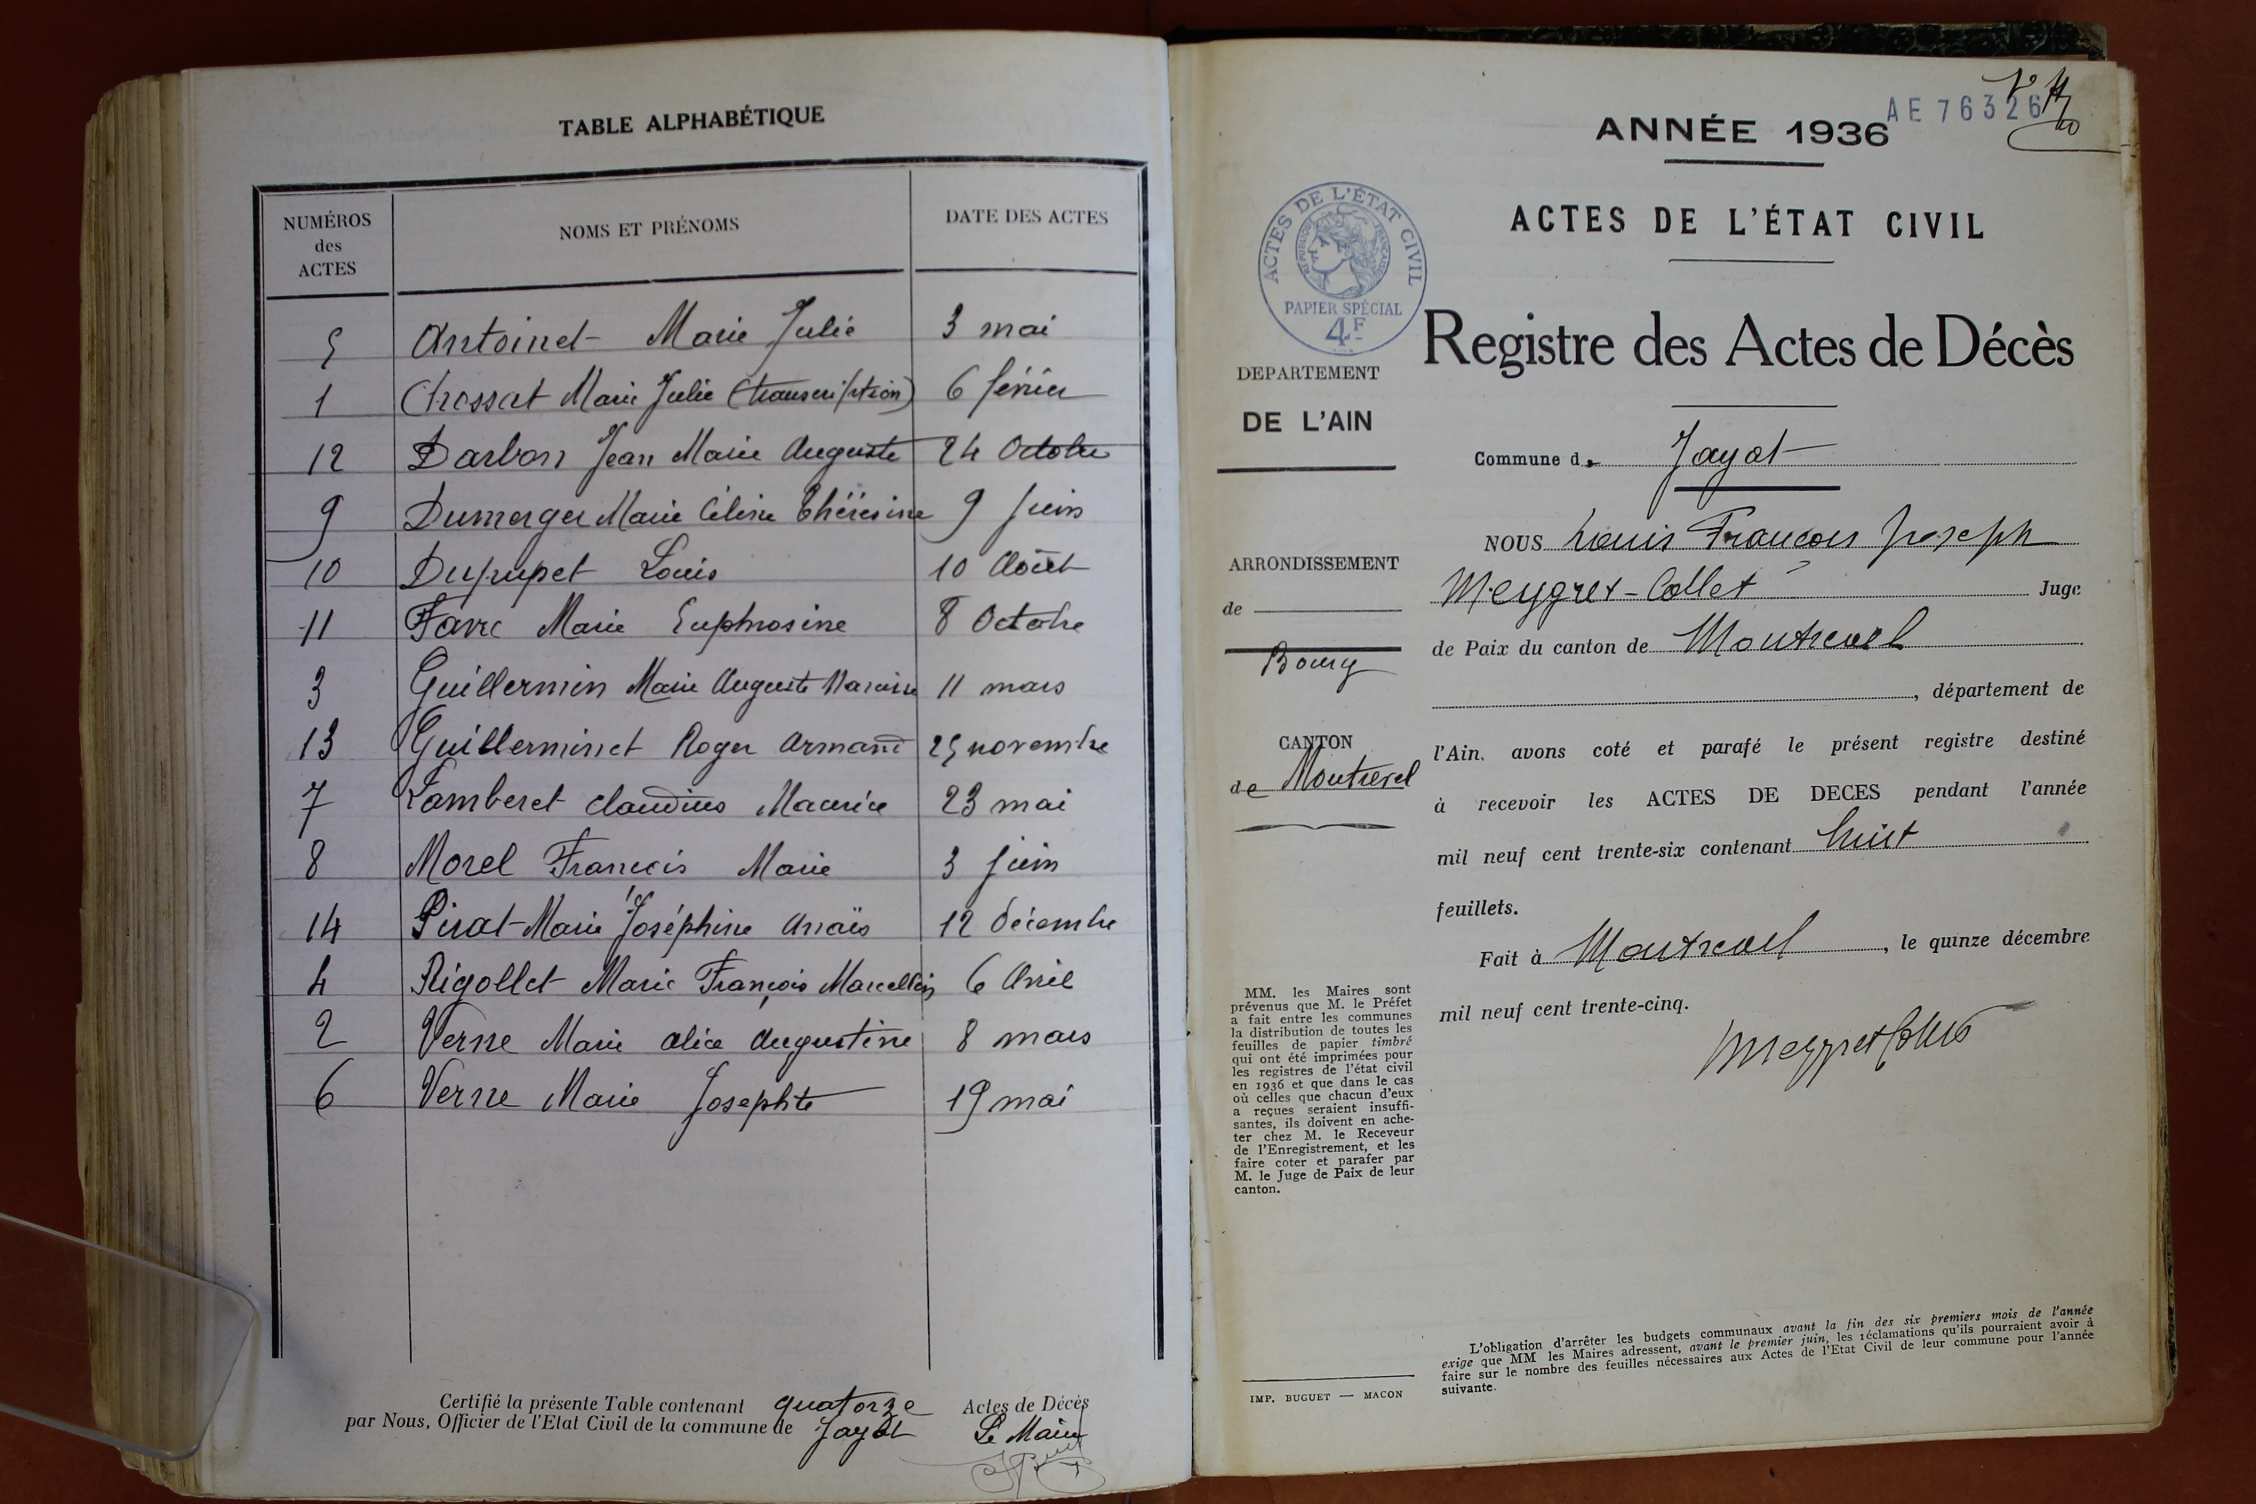 TABLE ALPHABÉTIQUE
NUMÉROS des ACTES NOMS ET PRÉNOMS DATE DES ACTES
5 Antoinet Marie Julie 3 mai
1 Chossat Marie Julie (transcription) 6 février
12 Darbon Jean Marie Auguste 24 Octobre
9 Dumerger Marie Céline Thérésine 9 Juin
10 Dupupet Louis 10 Août
11 Favre Marie Euphrosine 8 Octobre
3 Guillermin Marie Auguste 11 mars
13 Guilleminet Roger Armand 25 novembre
7 Lamberet Claudius Maurice 23 mai
8 Morel Francis Marie 3 Juin
14 Pirat Marie Joséphine Anaïs 12 décembre
4 Rigollet Marie François Marcellin 6 Avril
2 Verne Marie Alice Augustine 8 mars
6 Verne Marie Josephte 19 mai
Certifié la présente Table contenant quatorze Actes de Décès
par Nous, Officier de l'Etat Civil de la commune de Jayat Le Maire
AE 76326
ANNÉE 1936
ACTES DE L'ÉTAT CIVIL
Registre des Actes de Décès
ACTES DE L'ÉTAT CIVIL
RÉPUBLIQUE FRANÇAISE
PAPIER SPÉCIAL
4F
DEPARTEMENT
DE L'AIN
ARRONDISSEMENT
de
Bourg
CANTON
de Montrevel
Commune de Jayat
NOUS Louis François Joseph
Meygret-Collet Juge
de Paix du canton de Montrevel
, département de
l'Ain, avons coté et parafé le présent registre destiné
à recevoir les ACTES DE DECES pendant l'année
mil neuf cent trente-six contenant huit
feuillets.
Fait à Montrevel, le quinze décembre
mil neuf cent trente-cinq.
Meygret Collet
MM. les Maires sont
prévenus que M. le Préfet
a fait entre les communes
la distribution de toutes les
feuilles de papier timbré
qui ont été imprimées pour
les registres de l'état civil
en 1936 et que dans le cas
où celles que chacun d'eux
a reçues seraient insuffi-
santes, ils doivent en ache-
ter chez M. le Receveur
de l'Enregistrement, et les
faire coter et parafer par
M. le Juge de Paix de leur
canton.
IMP. BUGUET — MACON
L'obligation d'arrêter les budgets communaux avant la fin des six premiers mois de l'année
exige que MM les Maires adressent, avant le premier juin, les réclamations qu'ils pourraient avoir à
faire sur le nombre des feuilles nécessaires aux Actes de l'Etat Civil de leur commune pour l'année
suivante.